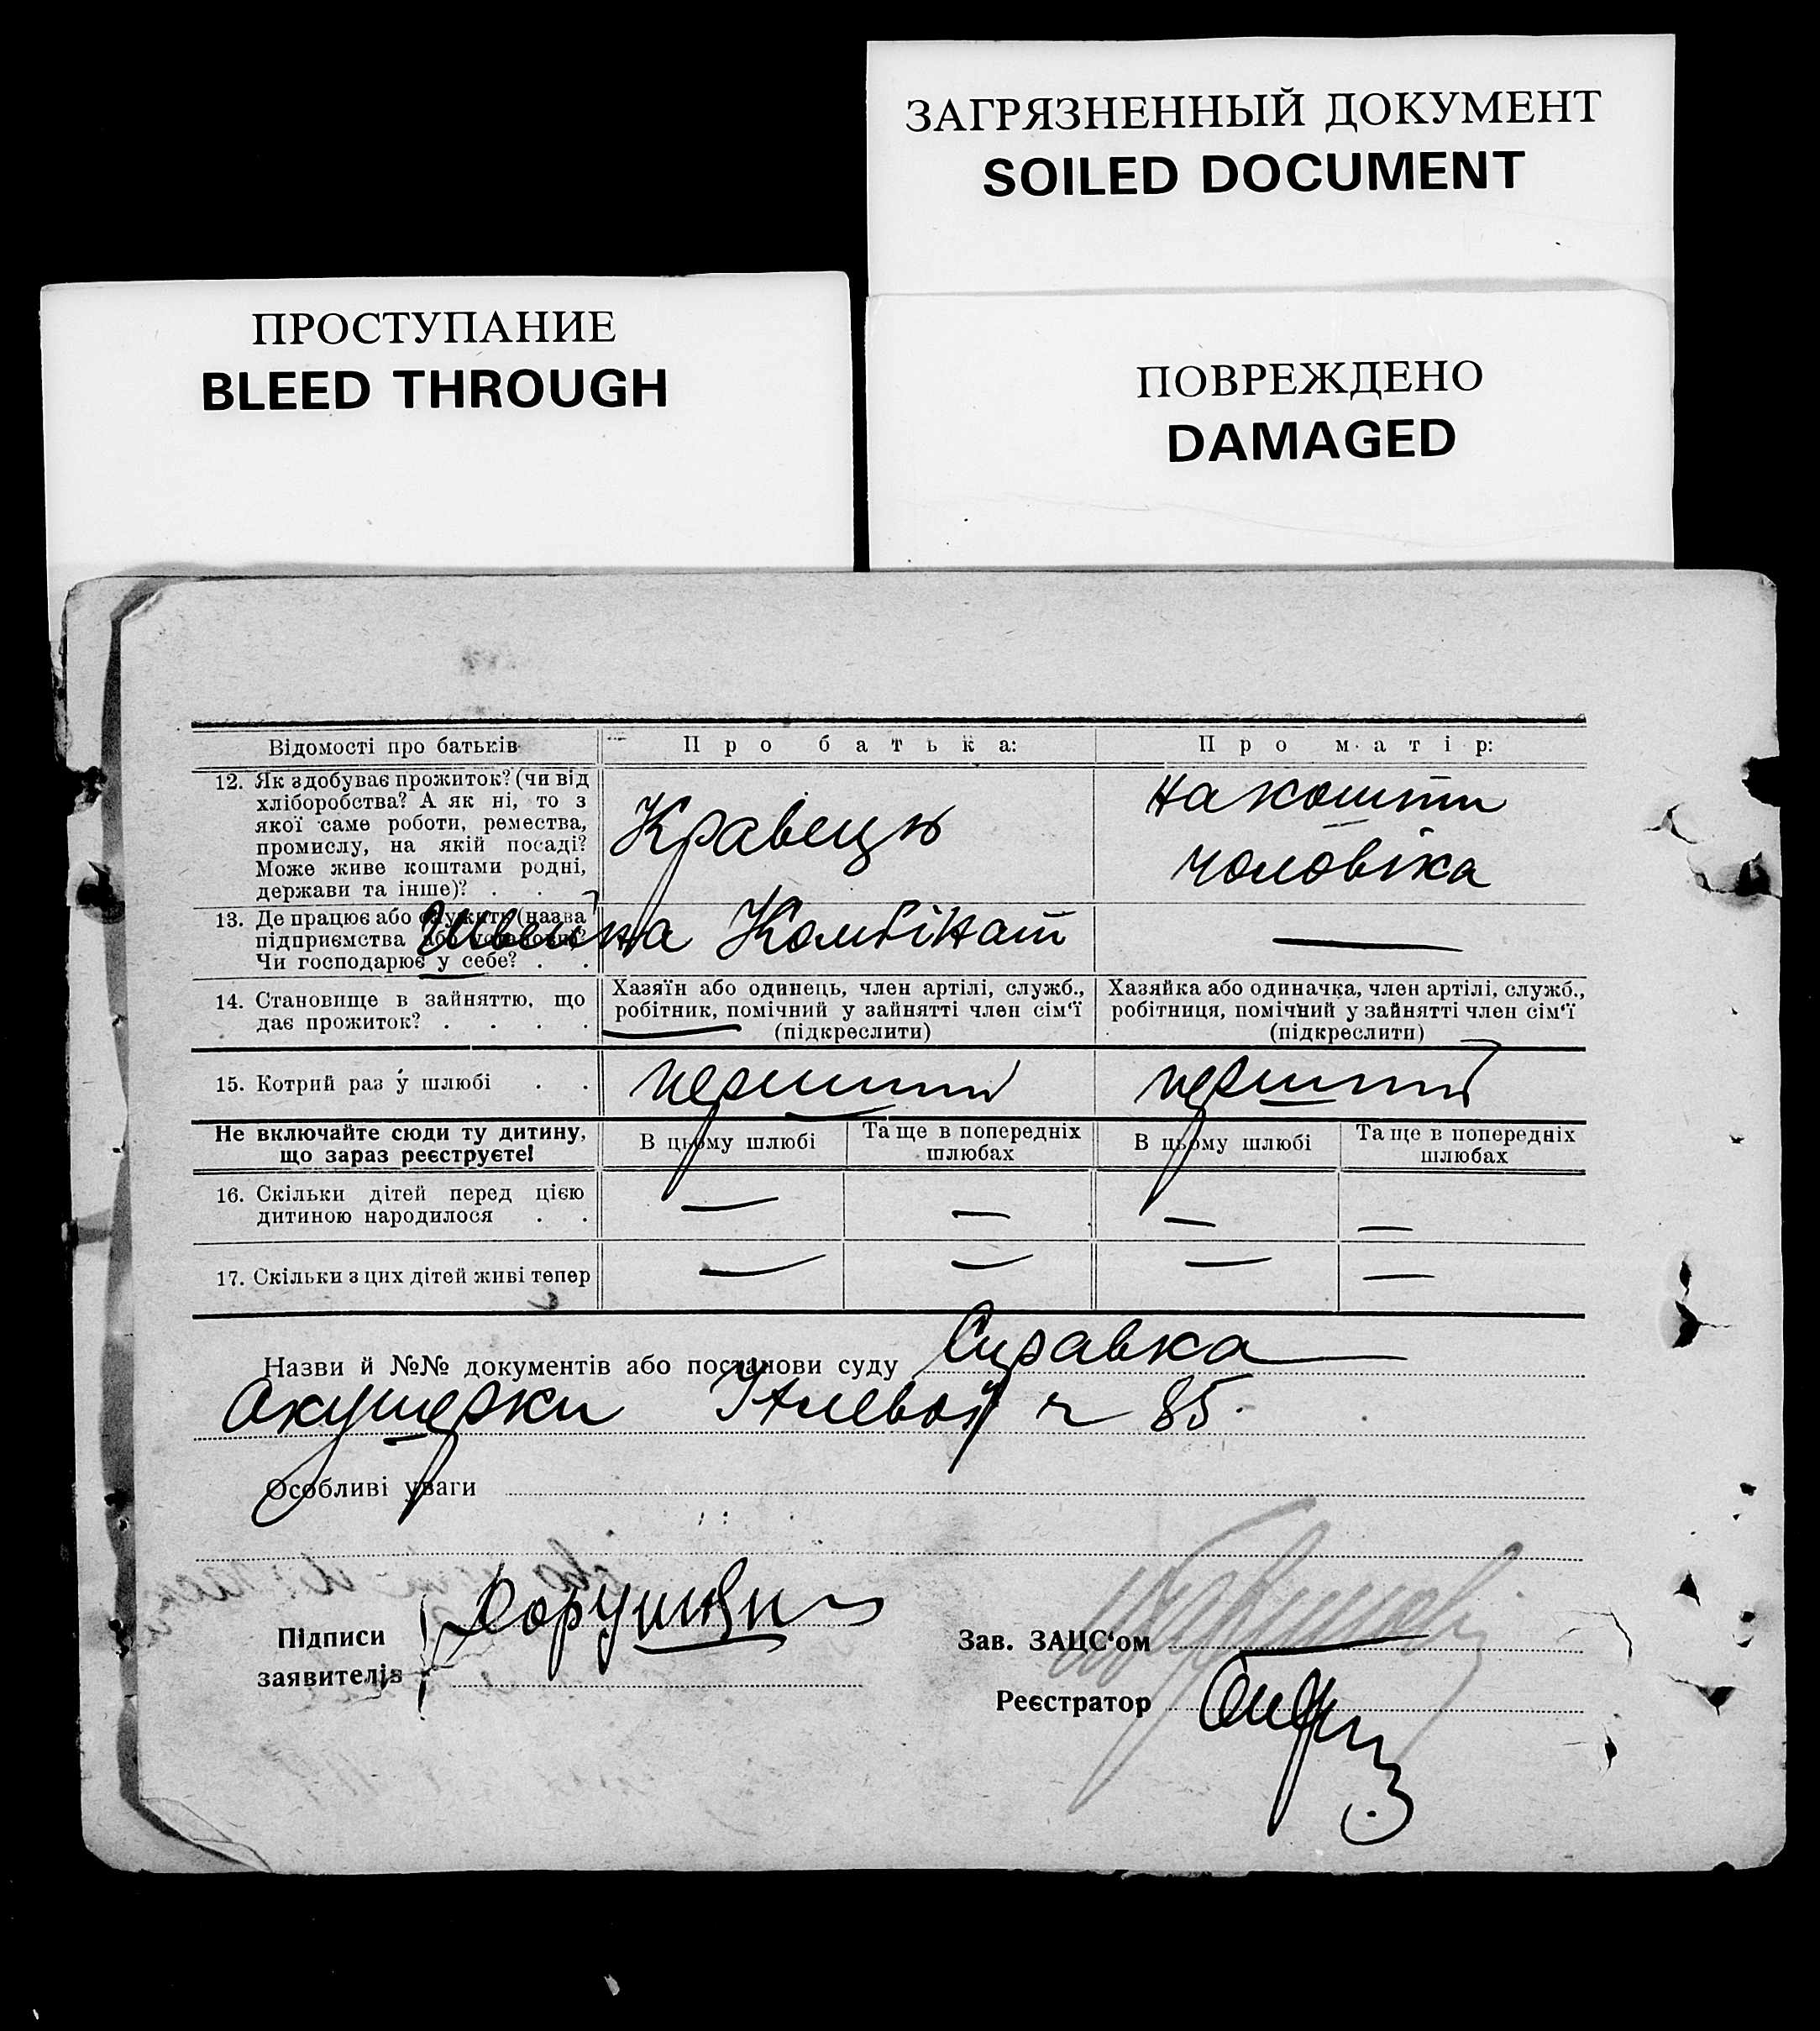 ЗАГРЯЗНЕННЫЙ ДОКУМЕНТ
SOILED DOCUMENT
ПРОСТУПАНИЕ
BLEED THROUGH
ПОВРЕЖДЕНО
DAMAGED
Відомості про батьків
Про батька:
Про матір:
12. Як здобуває прожиток? (чи від
хліборобства? А як ні, то з
якої саме роботи, ремества,
промислу, на якій посаді?
Може живе коштами родні,
держави та інше)? . . .
Кравець
на кошти
чоловіка
13. Де працює або служить (назва
підприємства або установи)?
Чи господарює у себе? . .
Швейна Комбінат
—
14. Становище в зайняттю, що
дає прожиток? . . . .
Хазяїн або одинець, член артілі, служб.,
робітник, помічний у зайнятті член сім'ї
(підкреслити)
Хазяйка або одиначка, член артілі, служб.,
робітниця, помічний у зайнятті член сім'ї
(підкреслити)
15. Котрий раз у шлюбі . .
перший
перший
Не включайте сюди ту дитину,
що зараз реєструєте!
В цьому шлюбі
Та ще в попередніх
шлюбах
В цьому шлюбі
Та ще в попередніх
шлюбах
16. Скільки дітей перед цією
дитиною народилося . .
— — — —
17. Скільки з цих дітей живі тепер
— — — —
Назви й №№ документів або постанови суду Справка
Акушерки ч 85.
Особливі уваги
Підписи
заявителів
Зав. ЗАЦС'ом
Реєстратор